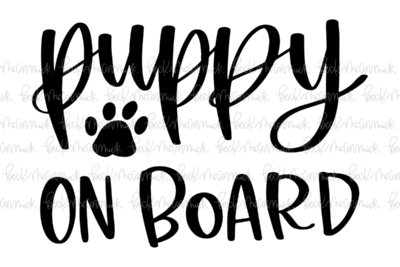 puppy
ON BOARD